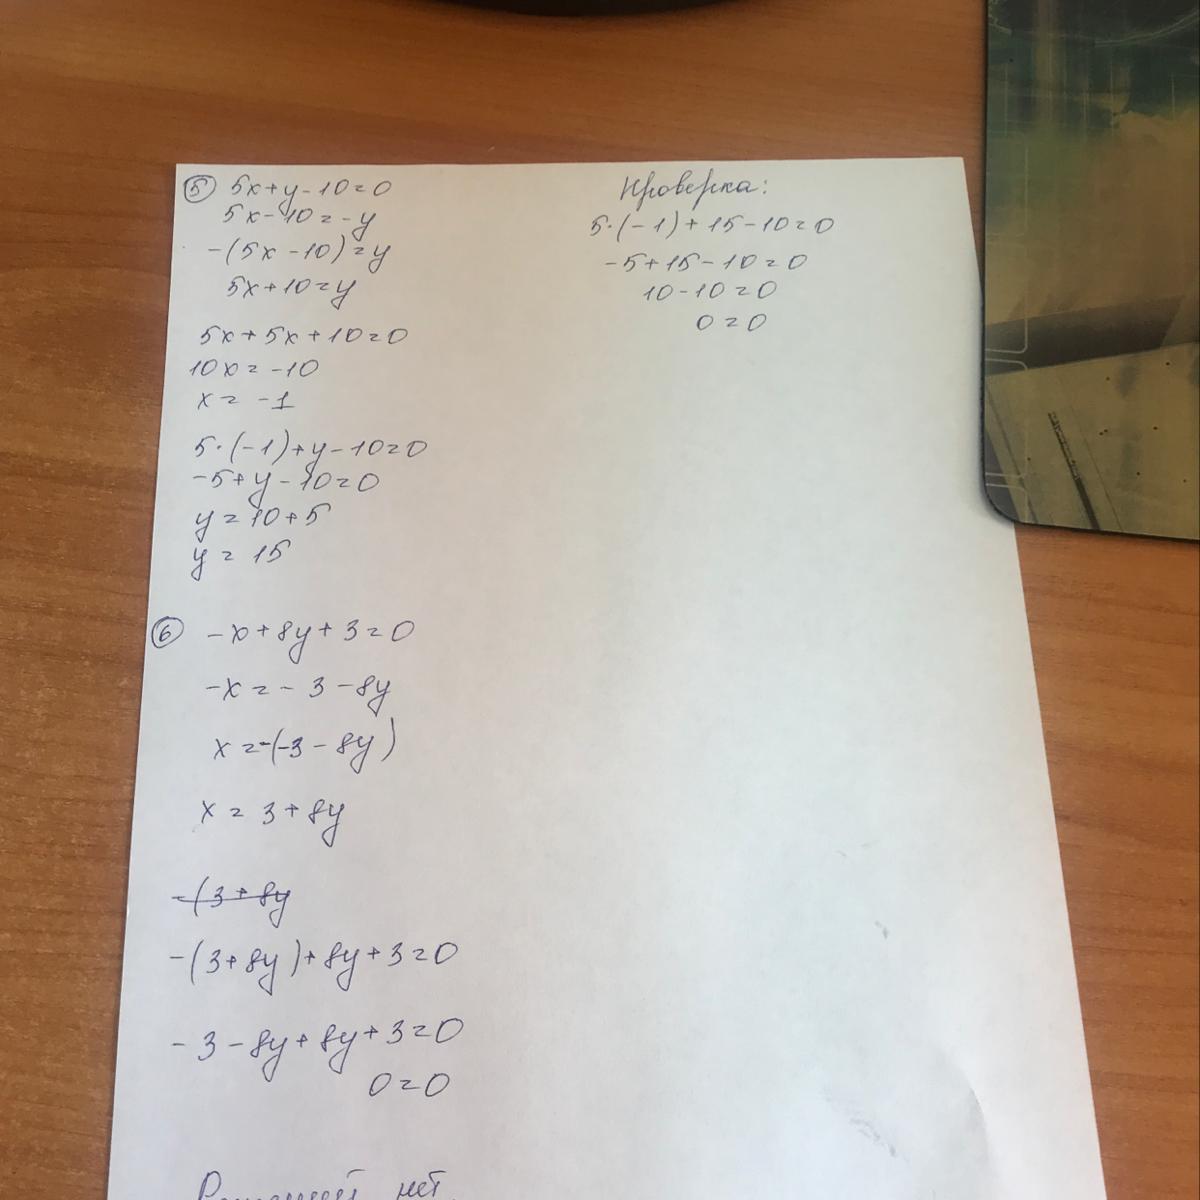 ⑤ 5x+y-10=0
5x-10=-y
-(5x-10)=y
5x+10=y
5x+5x+10=0
10x=-10
x=-1
5·(-1)+y-10=0
-5+y-10=0
y=10+5
y=15
Проверка:
5·(-1)+15-10=0
-5+15-10=0
10-10=0
0=0
⑥ -x+8y+3=0
-x=-3-8y
x=-(-3-8y)
x=3+8y
-(3+8y
-(3+8y)+8y+3=0
-3-8y+8y+3=0
0=0
Решений нет.